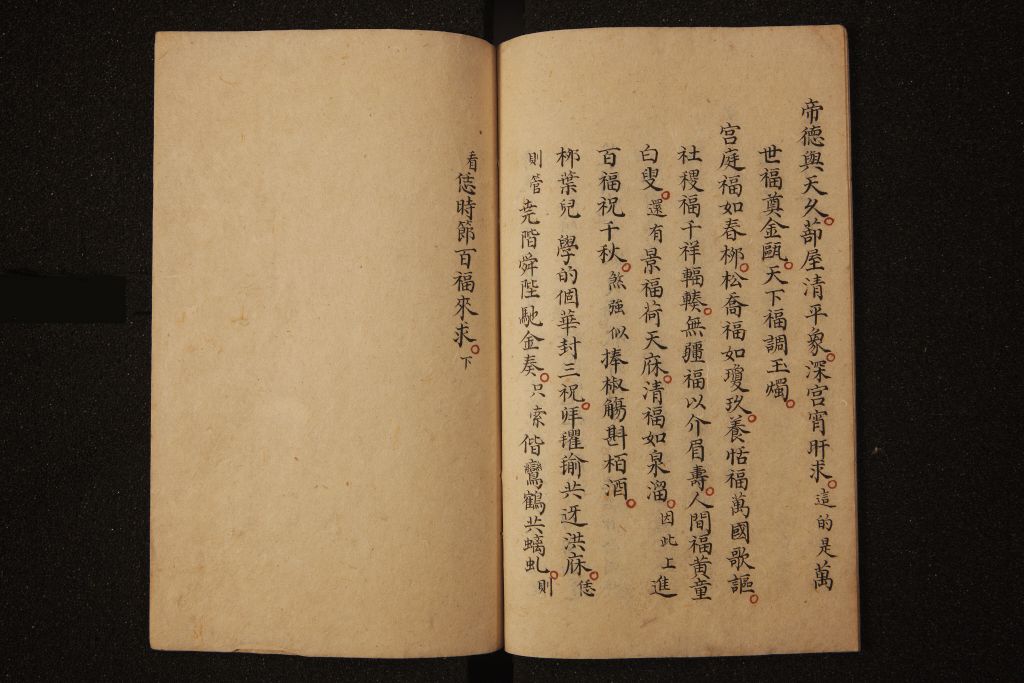 帝德與天久。蔀屋清平象。深宫宵旰求。這的是萬
世福奠金甌。天下福調玉燭。
宫庭福如春栁。松喬福如瓊玖。養恬福萬國歌謳。
社稷福千祥輻輳。無疆福以介眉壽。人間福黄童
白叟。還有景福荷天庥。清福如泉溜。因此上進
百福祝千秋。煞強似捧椒觴斟栢酒。
栁葉兒 學的個華封三祝。拜瓘瑜共迓洪庥。恁
則管堯階舜陛馳金奏。只索偕鸞鶴共螭虬。則
看恁時節百福來求。下